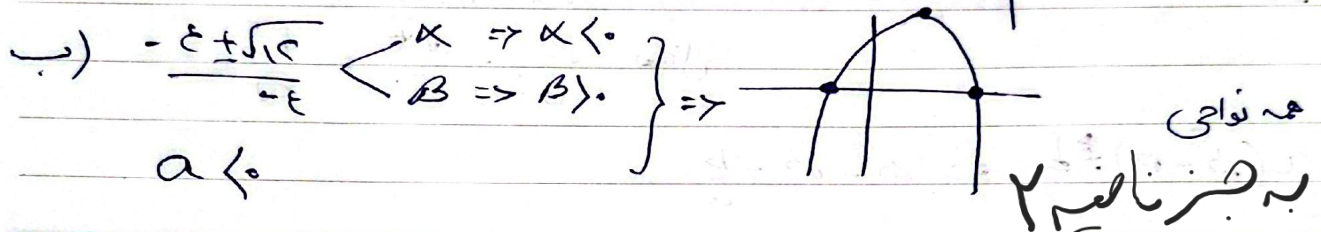 ب) (-۴ ± √۲۴)/-۴ < α => α < ۰
β => β > ۰ } =>
a < ۰
همه نواحی
به جز ناحیه ۲